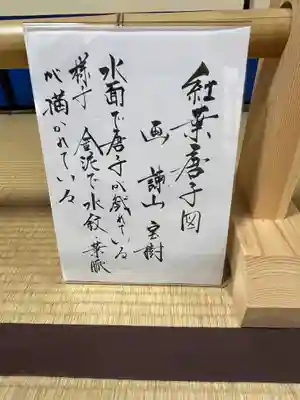 紅葉唐子図
画 諫山宝樹
水面で唐子が戯れている
様子 金泥で水紋・葉脈
が描かれている